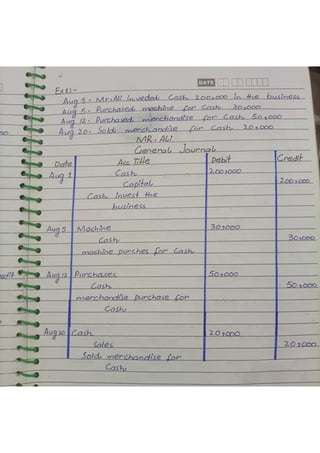 DATE
Ex1:-
Aug 1. Mr. Ali inveded Cash 200,000 in the business
Aug 5. Purchased machine for Cash 30,000
Aug 12. Purchased merchandise for Cash 50,000
Aug 20. Sold merchandise for Cash 20,000
MR. ALi
General Journal
Date Acc Title Debit Credit
Aug 1 Cash 200,000
Capital 200,000
Cash invest the
business
Aug 5 Machine 30,000
Cash 30,000
machine purches for Cash
Aug 12 Purchases 50,000
Cash 50,000
merchandise purchase for
Cash
Aug 20 Cash 20,000
Sales 20,000
Sold merchandise for
Cash